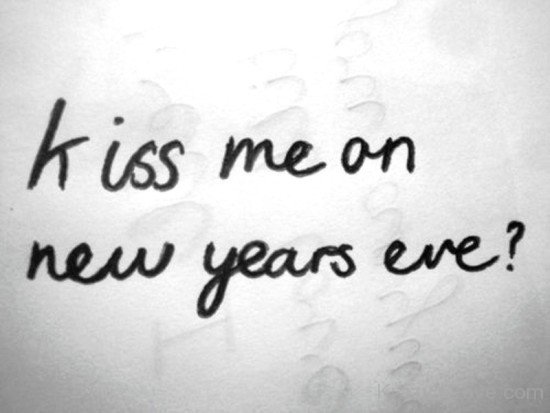 kiss me on
new years eve?